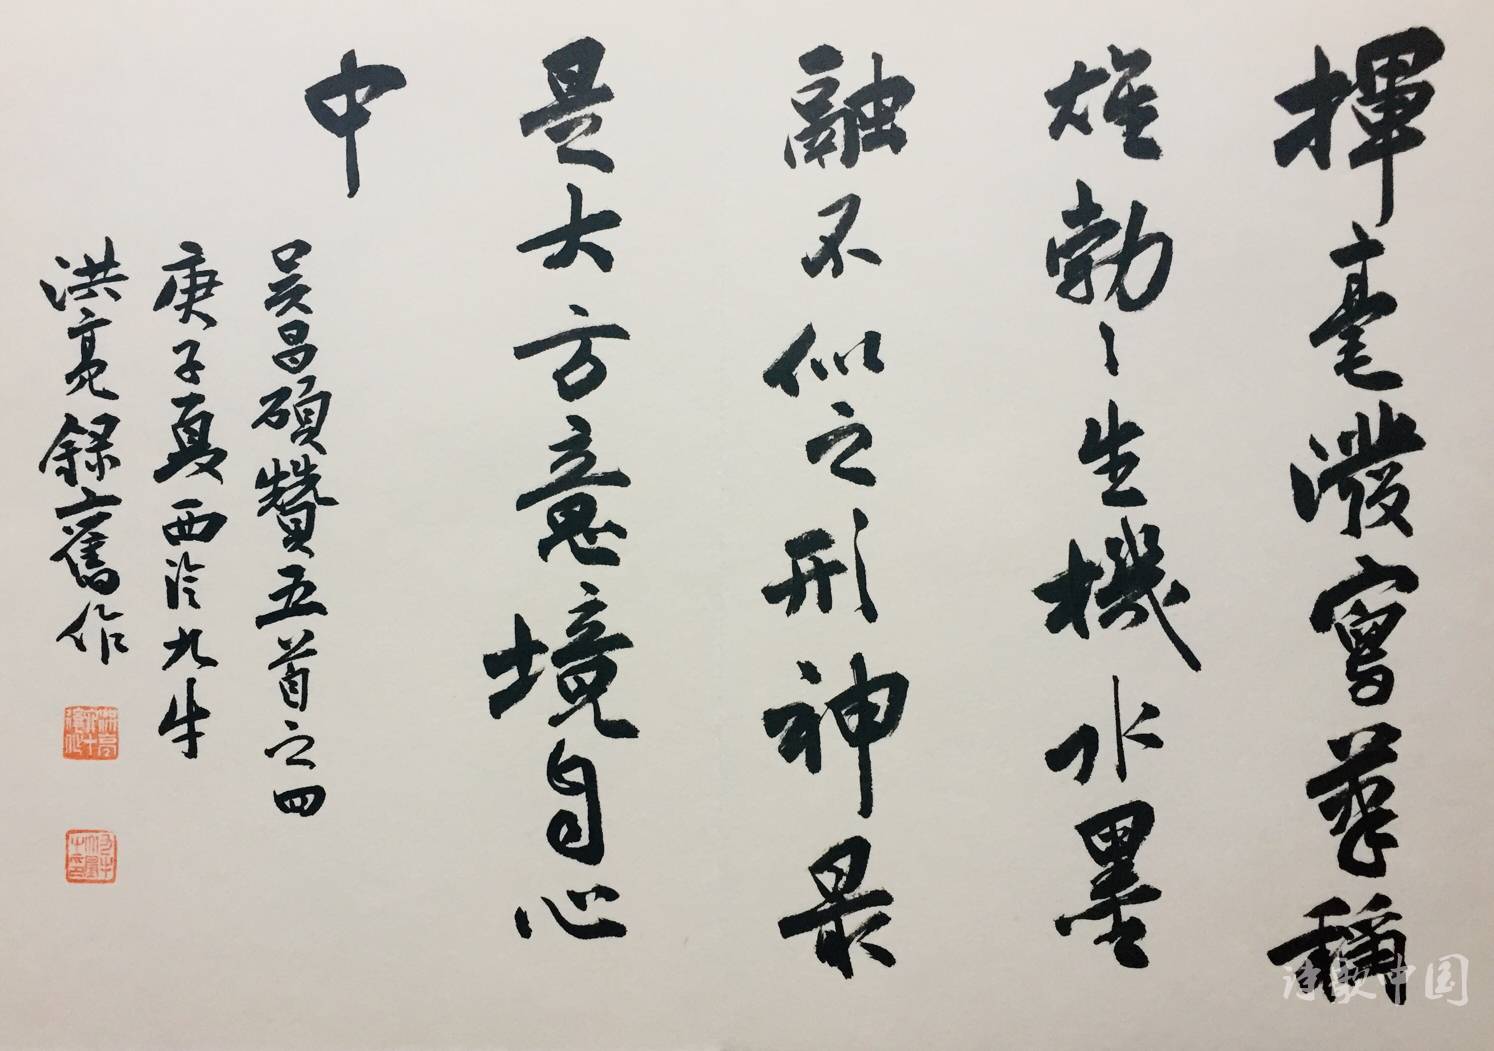 揮毫潑寫華稱
雄勃〻生機水墨
融不似之形神最
是大方意境自心
中
吴昌碩贊五首之四
庚子夏西泠九牛
洪亮録舊作
诗歌中国